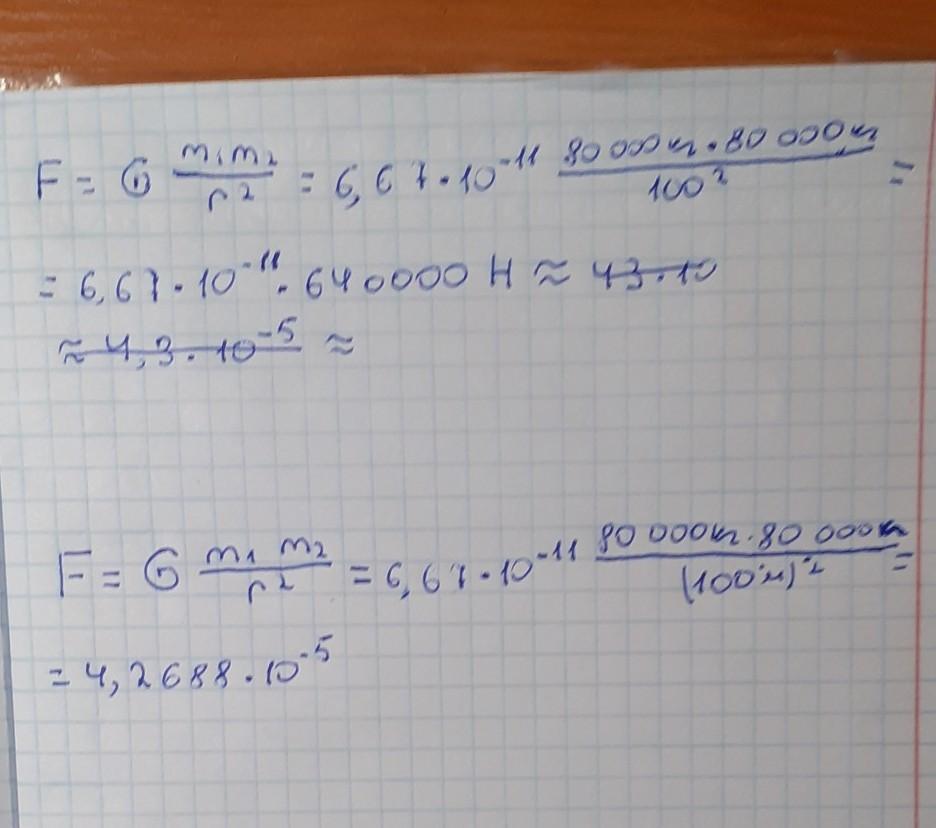 F = G m₁m₂/r² = 6,67·10⁻¹¹ 80 000кг·80 000кг/100² =
= 6,67·10⁻¹¹·640000 Н ≈ ~~43·10~~
~~≈ 4,3·10⁻⁵~~ ≈
F = G m₁ m₂/r² = 6,67·10⁻¹¹ 80 000кг·80 000кг/(100м)² =
= 4,2688·10⁻⁵